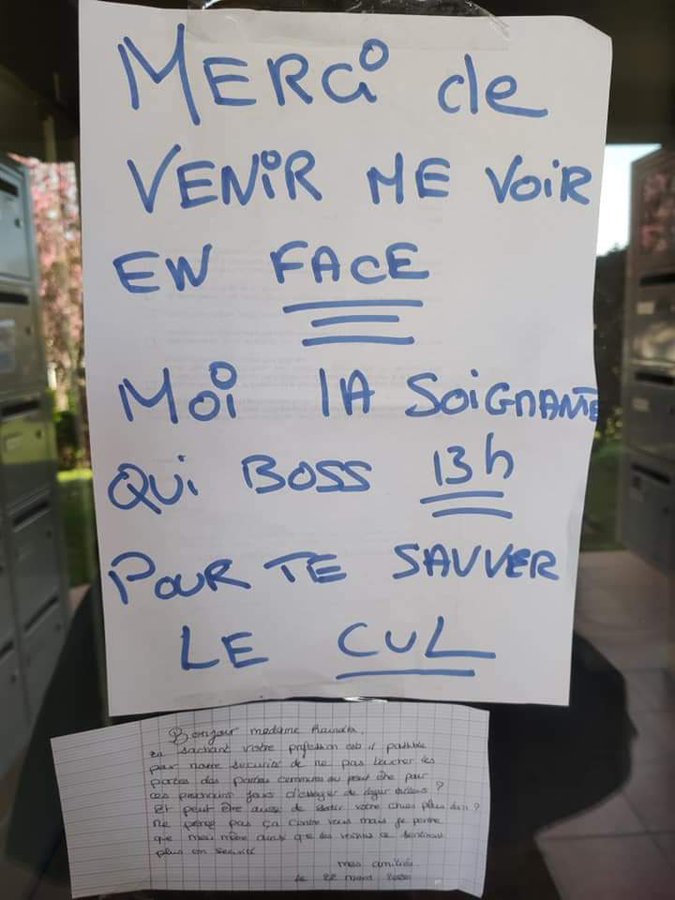 MERCi de
VENIR ME VOIR
EN FACE
MOi LA SOIGNANTE
QUi BOSS 13h
POUR TE SAUVER
LE CUL
Bonjour madame
En sachant votre profession est il possible
pour notre sécurité de ne pas toucher les
portes des parties communes ou peut être pour
ces prochains jours d'essayer de loger ailleurs ?
Et peut être aussi de sortir votre chien plus loin ?
Ne prenez pas ça contre vous mais je pense
que moi même ainsi que des voisins se sentirons
plus en sécurité
mes amitiés
le 22 mars 2020